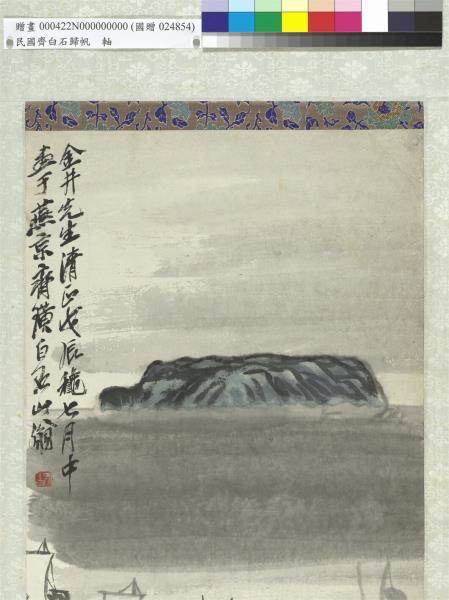 贈畫 000422N000000000 (國贈 024854)
民國齊白石歸帆 軸
金井先生清正戊辰秋七月中
畫于燕京齊璜白石山翁